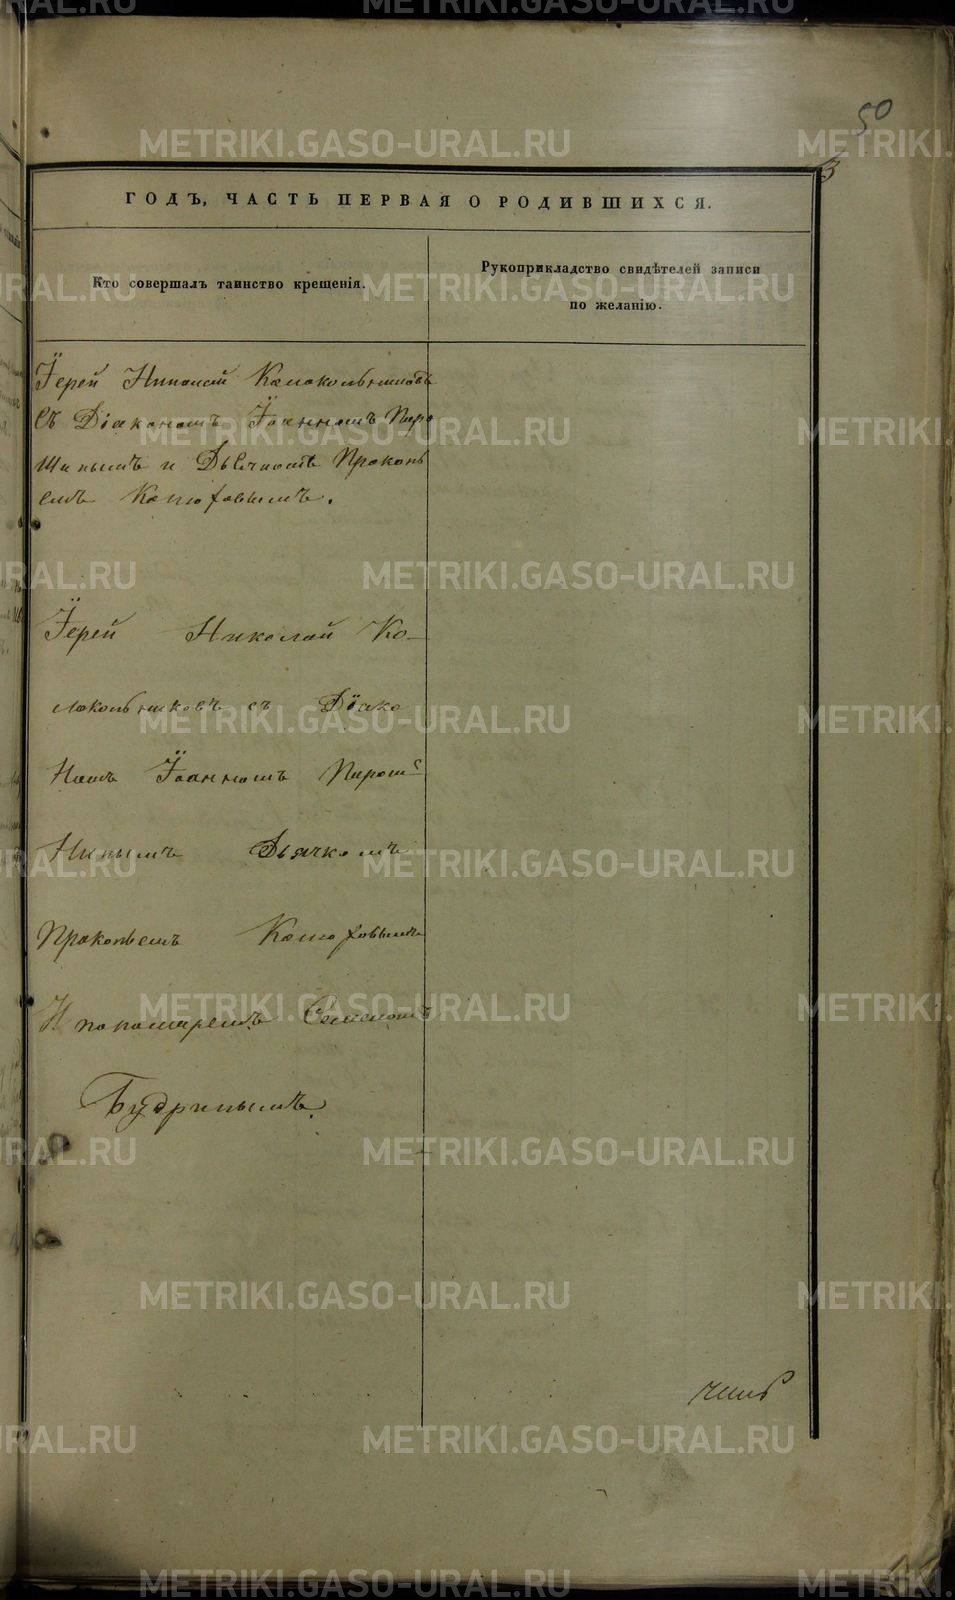 METRIKI.GASO-URAL.RU
50
3
ГОДЪ, ЧАСТЬ ПЕРВАЯ О РОДИВШИХСЯ.
Кто совершалъ таинство крещенія.
Рукоприкладство свидѣтелей записи
по желанію.
Іерей Николай Колокольниковъ
Съ Діакономъ Іоанномъ Пиро
Шниковымъ и Дьячкомъ Прокопь
емъ Котюховымъ.
Іерей Николай Ко-
локольниковъ съ Діако
Номъ Іоанномъ
Дьячкомъ
Прокопьемъ
И пономаремъ Семеномъ
Будринымъ.